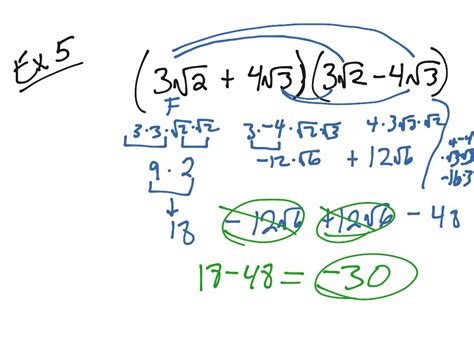 Ex 5
(3√2 + 4√3)(3√2 - 4√3)
F
3·3·√2·√2 3·-4·√2·√3 4·3√3·√2 4·-4
·√3√3
9·2 -12√6 +12√6 -16·3
18 -12√6 +12√6 -48
18-48 = -30